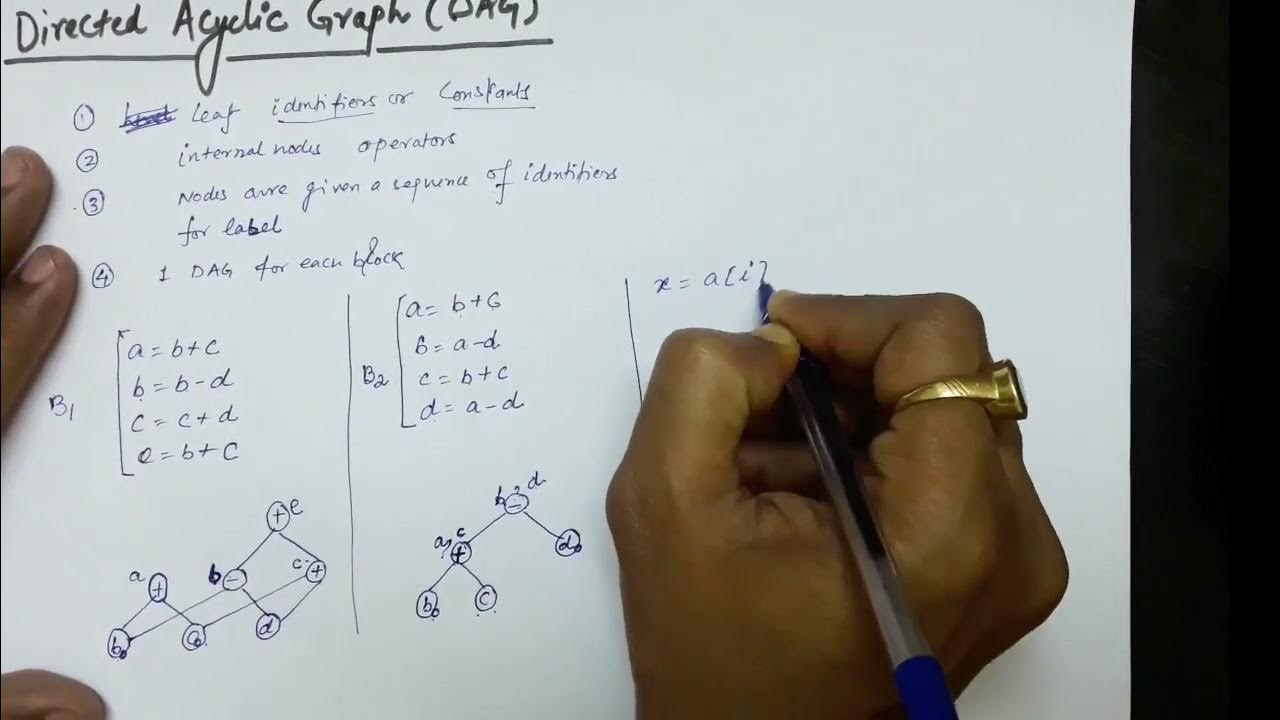 Directed Acyclic Graph (DAG)
① Leaf identifiers or Constants
② internal nodes operators
③ Nodes are given a sequence of identifiers
for label
④ 1 DAG for each block
B1
a = b + c
b = b - d
c = c + d
e = b + c
B2
a = b + c
b = a - d
c = b + c
d = a - d
x = a[i]
+ e
a + b - c +
b0 c0 d
b, d -
a, c + d0
b0 c